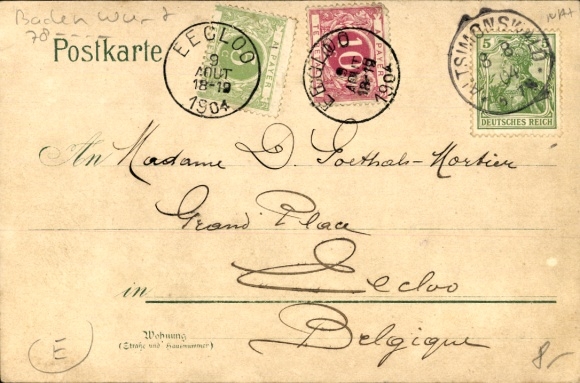 Baden Wurt
78
Postkarte
EECLOO
9
AOUT
18-19
1904
A PAYER
5
EECLOO
9
AOUT
18-19
1904
A PAYER
10
5
DEUTSCHES REICH
8 8
04
An Madame D. Goethals-Mortier
Grand Place
in Eecloo
Belgique
Wohnung
(Straße und Hausnummer)
E
8.-